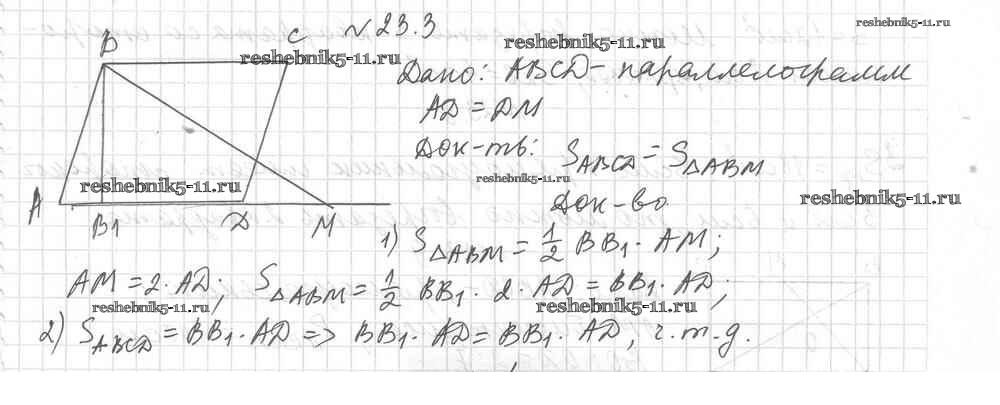 reshebnik5-11.ru
№ 23.3
B C
reshebnik5-11.ru reshebnik5-11.ru
Дано: ABCD – параллелограмм
AD = DM
Док-ть: S ABCD = S △ABM
reshebnik5-11.ru reshebnik5-11.ru reshebnik5-11.ru
Док-во
A B1 D M
1) S △ABM = 1/2 BB1 · AM;
AM = 2 · AD; S △ABM = 1/2 BB1 · 2 · AD = BB1 · AD;
reshebnik5-11.ru reshebnik5-11.ru
2) S ABCD = BB1 · AD => BB1 · AD = BB1 · AD, ч.т.д.